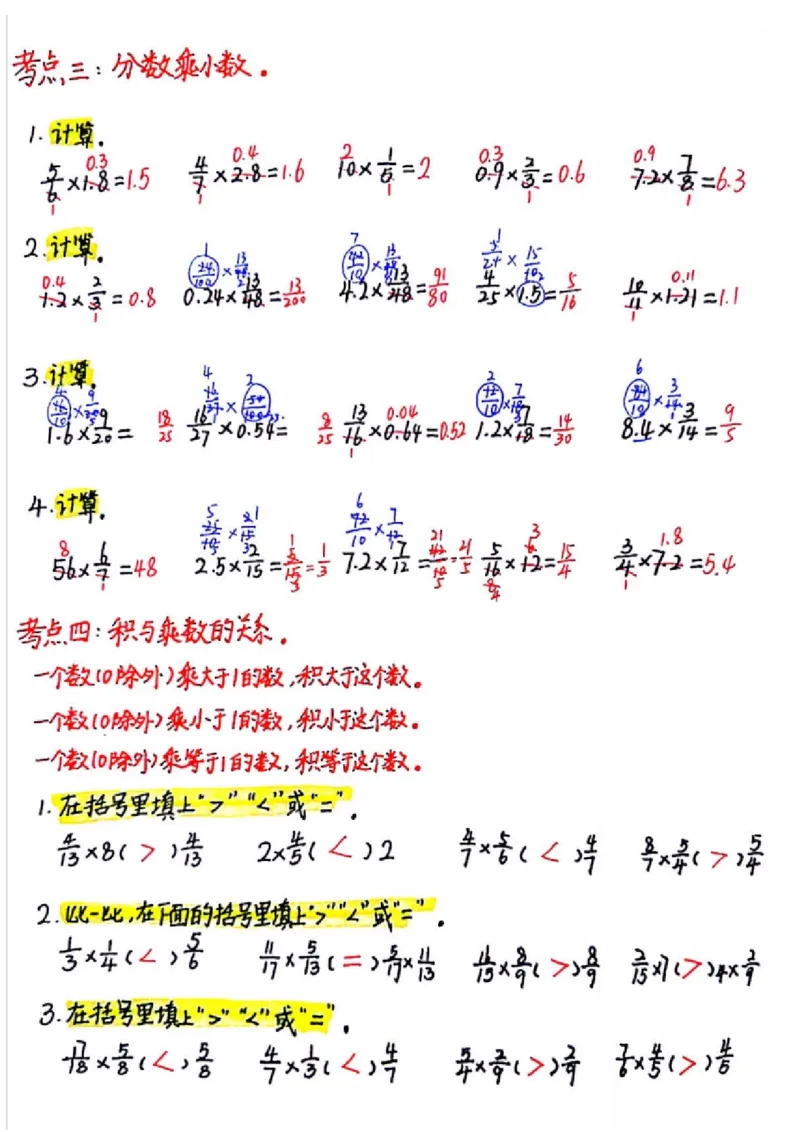 考点三：分数乘小数。
1. 计算。
5/6×1.8=1.5 4/7×2.8=1.6 10×1/5=2 0.9×2/3=0.6 7.2×7/8=6.3
2. 计算。
1.2×2/3=0.8 0.24×13/48=13/200 4.2×13/48=91/80 4/25×1.5=5/16 10/11×1.21=1.1
3. 计算。
1.6×9/20= 18/25 16/27×0.54= 8/25 13/16×0.64=0.52 1.2×7/18=14/30 8.4×3/14=9/5
4. 计算。
56×6/7=48 2.5×2/15=5/15=1/3 7.2×7/12=42/10=21/5 5/16×12=15/4 3/4×7.2=5.4
考点四：积与乘数的关系。
一个数(0除外)乘大于1的数,积大于这个数。
一个数(0除外)乘小于1的数,积小于这个数。
一个数(0除外)乘等于1的数,积等于这个数。
1. 在括号里填上“>”“<”或“=”。
4/13×8(>)4/13 2×4/5(<)2 4/7×5/6(<)4/7 8/7×5/4(>)5/4
2. 比一比,在下面的括号里填上“>”“<”或“=”。
1/3×1/4(<)5/6 11/17×5/13(=)5/17×11/13 16/15×8/9(>)8/9 (>)4×2/9
3. 在括号里填上“>”“<”或“=”。
17/18×5/8(<)5/8 4/7×1/3(<)4/7 5/4×2/9(>)2/9 7/6×4/5(>)4/5